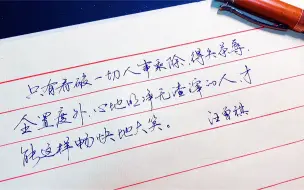 只有看破一切人事乘除,得失荣辱,
全置度外,心地明净无渣滓的人,才
能这样畅快地大笑。 汪曾祺